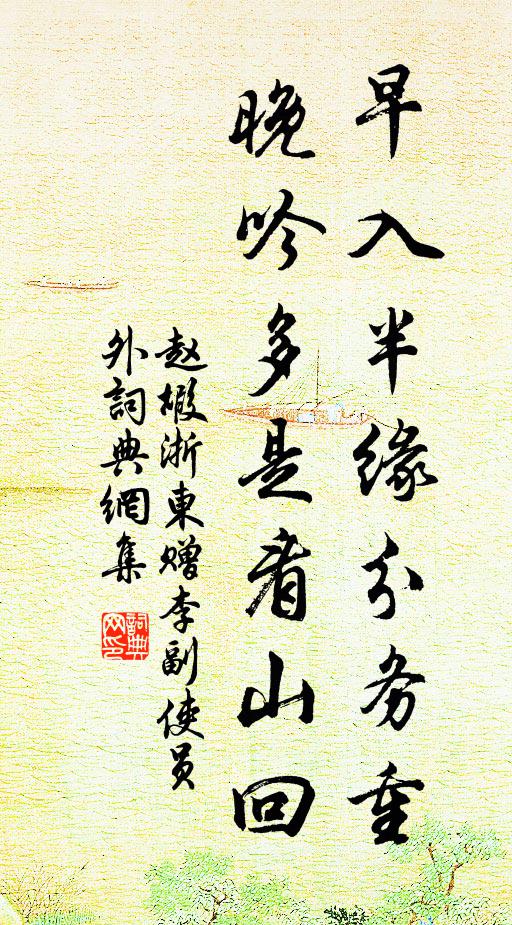 早入半缘分务重
晚吟多是看山回
赵嘏浙東赠李副使员
外詞典網集
詞典
网印